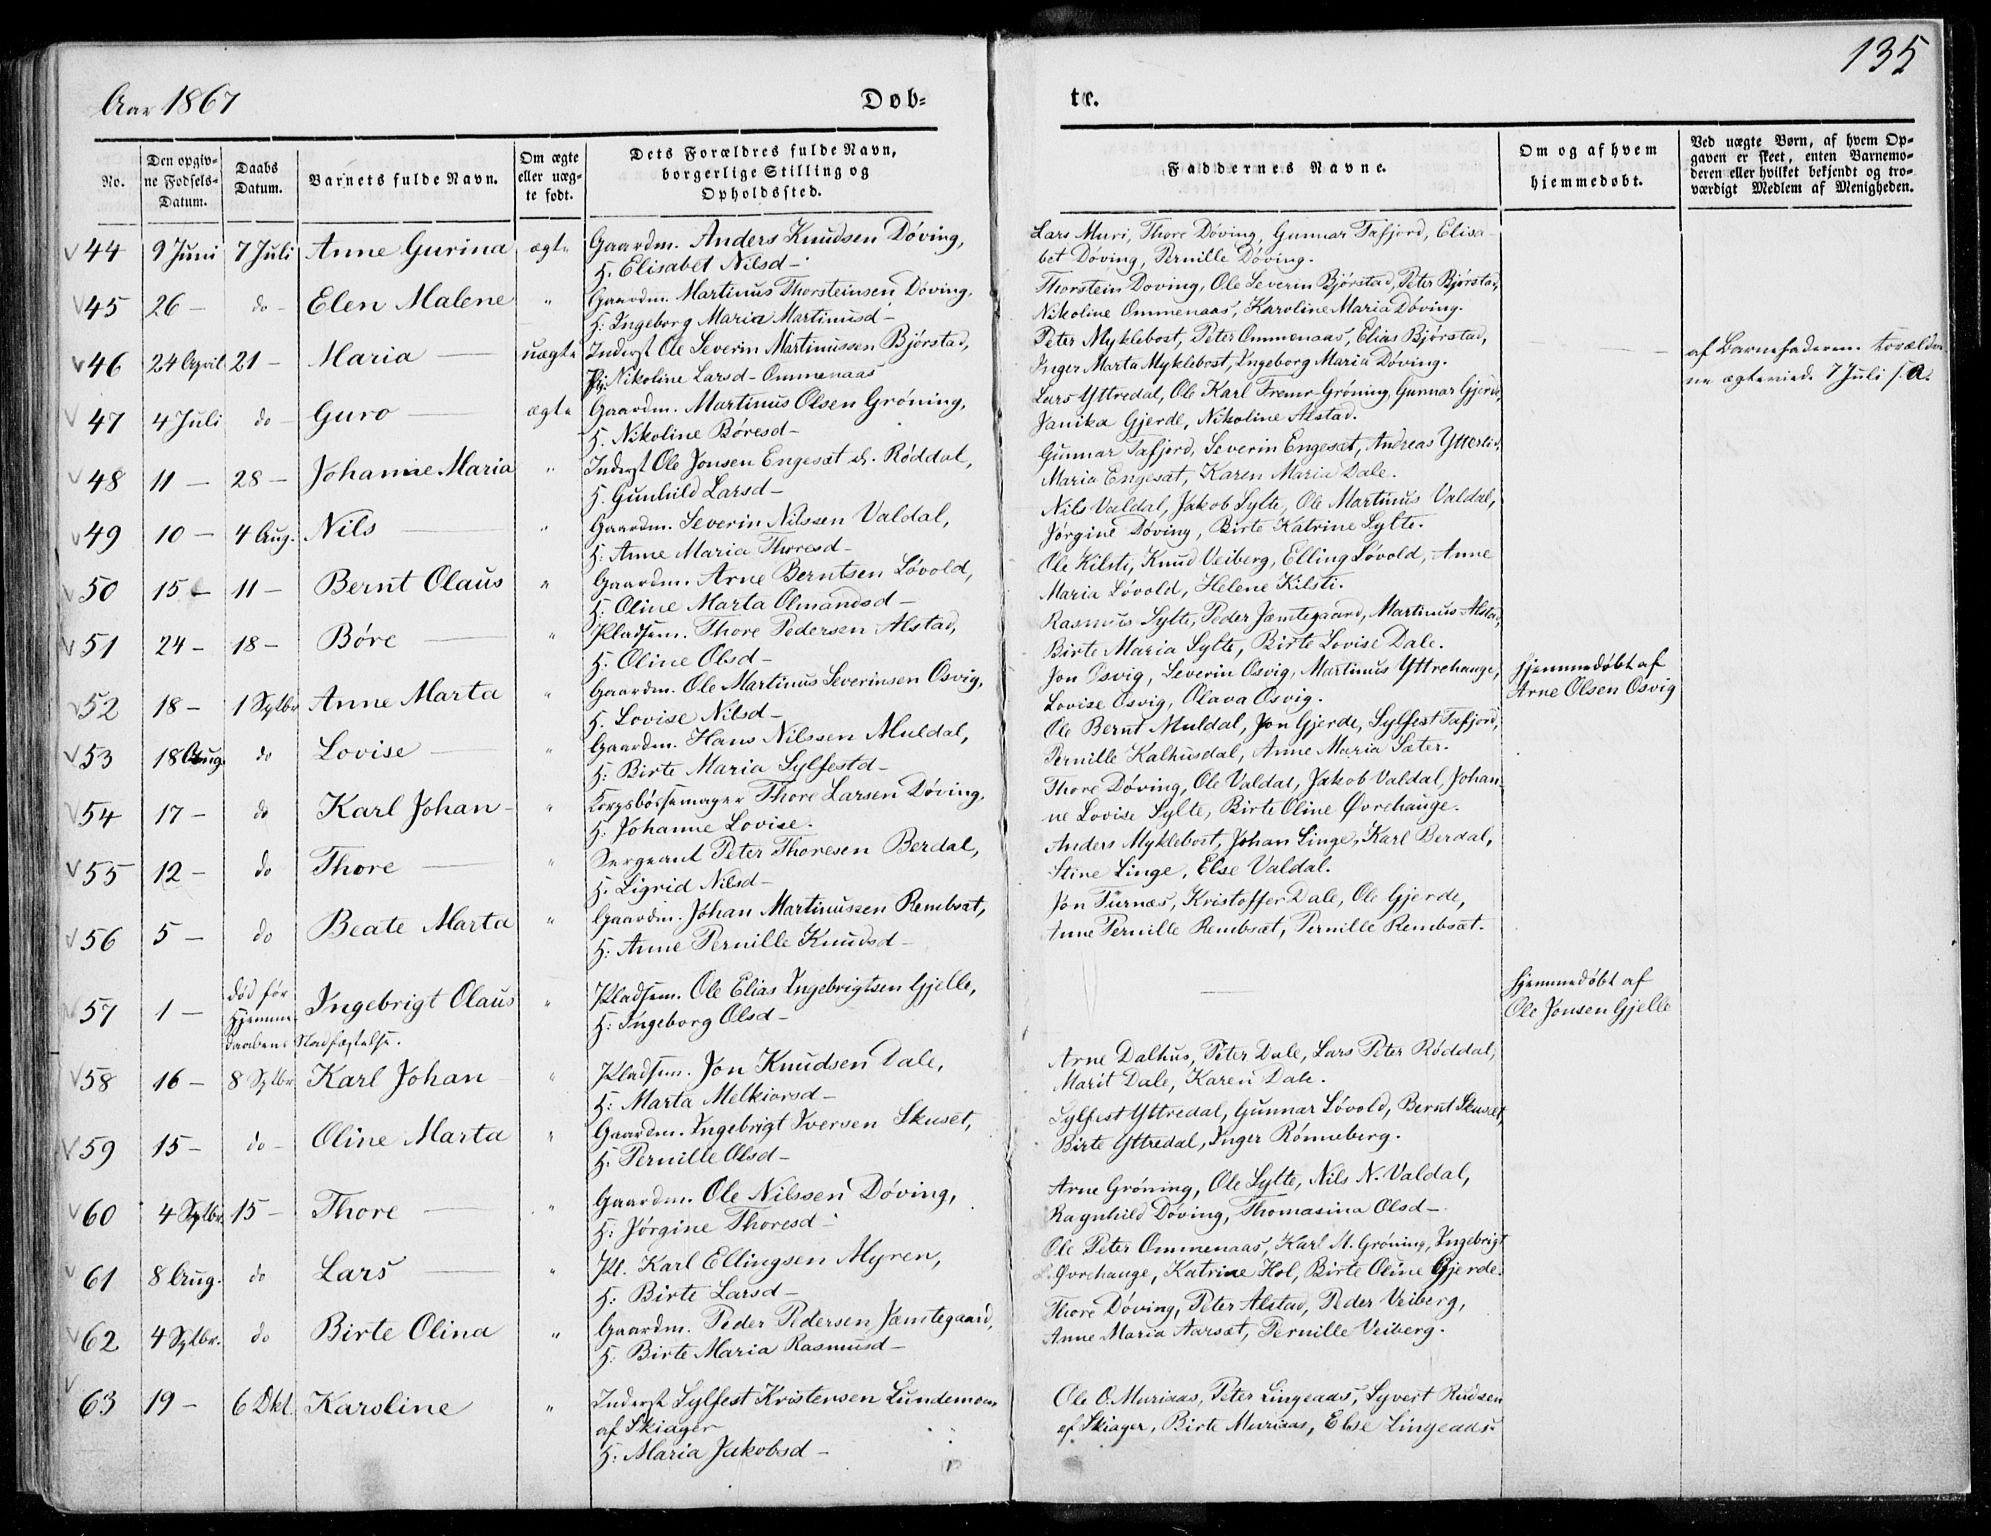 Aar 1867
Døb-
te.
135
No.
Den opgiv-
ne Fødsels-
Datum.
Daabs
Datum.
Barnets fulde Navn.
Om ægte
eller uæg-
te født.
Dets Forældres fulde Navn,
borgerlige Stilling og
Opholdssted.
Faddernes Navne.
Om og af hvem
hjemmedøbt.
Ved uægte Børn, af hvem Op-
gaven er skeet, enten Barnemo-
deren eller hvilket bekjendt og tro-
værdigt Medlem af Menigheden.
44 9 Juni 7 Juli Anne Gurina ægte Gaardm. Anders Knudsen Døving,
H. Elisabet Nilsd-
Lars Muri, Thore Døving, Gunnar Tafjord, Elisa-
bet Døving, Pernille Døving.
45 26 - do - Elen Malene " Gaardm. Martinus Thorsteinsen Døving,
H: Ingeborg Maria Martinusd-
Thorstein Døving, Ole Severin Bjørstad, Peter Bjørstad,
Nikoline Ommenaas, Karoline Maria Døving.
46 24 April 21 - Maria - uægte Inderst Ole Severin Martinussen Bjørstad,
Pig. Nikoline Larsd- Ommenaas
Peter Myklebost, Peter Ommenaas, Elias Bjørstad,
Inger Marta Myklebost, Ingeborg Maria Døving.
af Barnefaderen. Forældre-
ne ægteviede 7 Juli s. A.
47 4 Juli do - Guro - ægte Gaardm. Martinus Olsen Grøning,
H. Nikoline Børesd-
Lars Yttredal, Ole Karl Fremr-Grøning, Gunnar Gjerde,
Janika Gjerde, Nikoline Alstad.
48 11 - 28 - Johanne Maria " Inderst Ole Jonsen Engesæt el. Røddal,
H. Gunhild Larsd-
Gunnar Tafjord, Severin Engesæt, Andreas Ytterli,
Maria Engesæt, Karen Maria Dale.
49 10 - 4 Aug. Nils - " Gaardm. Severin Nilssen Valdal,
H: Anne Maria Thoresd-
Nils Valdal, Jakob Sylte, Ole Martinus Valdal,
Jørgine Døving, Birte Katrine Sylte.
50 15 - 11 - Bernt Olaus " Gaardm. Arne Berntsen Løvold,
H. Oline Marta Olmandsd-
Ole Kilsti, Knud Veiberg, Elling Løvold, Anne
Maria Løvold, Helene Kilsti.
51 24 - 18 - Børe - " Pladsem. Thore Pedersen Alstad,
H. Oline Olsd-
Rasmus Sylte, Peder Jæmtegaard, Martinus Alstad,
Birte Maria Sylte, Birte Lovise Dale.
52 18 - 1 Sptbr Anne Marta " Gaardm. Ole Martinus Severinsen Osvig,
H. Lovise Nilsd-
Jon Osvig, Severin Osvig, Martinus Yttrehauge,
Lovise Osvig, Olava Osvig.
hjemmedøbt af
Arne Olsen Osvig
53 18 Aug. do Lovise - " Gaardm. Hans Nilssen Muldal,
H: Birte Maria Sylfestd-
Ole Bernt Muldal, Jon Gjerde, Sylfest Tafjord,
Pernille Kalhusdal, Anne Maria Sæter.
54 17 - do Karl Johan - " Korpsbøssemager Thore Larsen Døving,
H: Johanne Lovise.
Thore Døving, Ole Valdal, Jakob Valdal, Johan-
ne Lovise Sylte, Birte Oline Øvrehauge.
55 12 - do Thore - " Sergeant Peter Thoresen Berdal,
H. Sigrid Nilsd-
Anders Myklebost, Johan Linge, Karl Berdal,
Stine Linge, Else Valdal.
56 5 - do Beate Marta " Gaardm. Johan Martinussen Rembsæt,
H: Anne Pernille Knudsd-
Jon Furnæs, Kristoffer Dale, Ole Gjerde,
Anne Pernille Rembsæt, Pernille Rembsæt.
57 1 - død før
Hjemme-
daabens Stadfæstelse.
Ingebrigt Olaus " Pladsem. Ole Elias Ingebrigtsen Gjelle,
H: Ingeborg Olsd-
-
hjemmedøbt af
Ole Jonsen Gjelle
58 16 - 8 Sptbr Karl Johan " Pladsem. Jon Knudsen Dale,
H: Marta Melkiorsd-
Arne Dalhus, Peter Dale, Lars Peter Røddal,
Marit Dale, Karen Dale.
59 15 - do - Oline Marta " Gaardm. Ingebrigt Iversen Skuset,
H. Pernille Olsd-
Sylfest Yttredal, Gunnar Løvold, Bernt Skuset,
Birte Yttredal, Inger Rønneberg.
60 4 Sptbr. 15 - Thore - " Gaardm. Ole Nilssen Døving,
H: Jørgine Thoresd-
Arne Grøning, Ole Sylte, Nils N. Valdal,
Ragnhild Døving, Thomasina Olsd-
61 8 Aug. do Lars - " Pl. Karl Ellingsen Myren,
H: Birte Larsd-
Ole Peter Ommenaas, Karl M. Grøning, Ingebrigt
L. Øvrehauge, Katrine Hol, Birte Oline Gjerde.
62 4 Sptbr. do Birte Olina " Gaardm. Peder Pedersen Jæmtegaard,
H: Birte Maria Rasmusd-
Thore Døving, Peter Alstad, Peder Veiberg,
Anne Maria Aarsæt, Pernille Veiberg.
63 19 - 6 Okt. Karoline " Inderst Sylfest Kristensen Lundemoen
af Skiager
H: Maria Jakobsd-
Ole O. Muriaas, Peter Lingeaas, Syvert Rudsen
af Skiager, Birte Muriaas, Else Lingeaas.